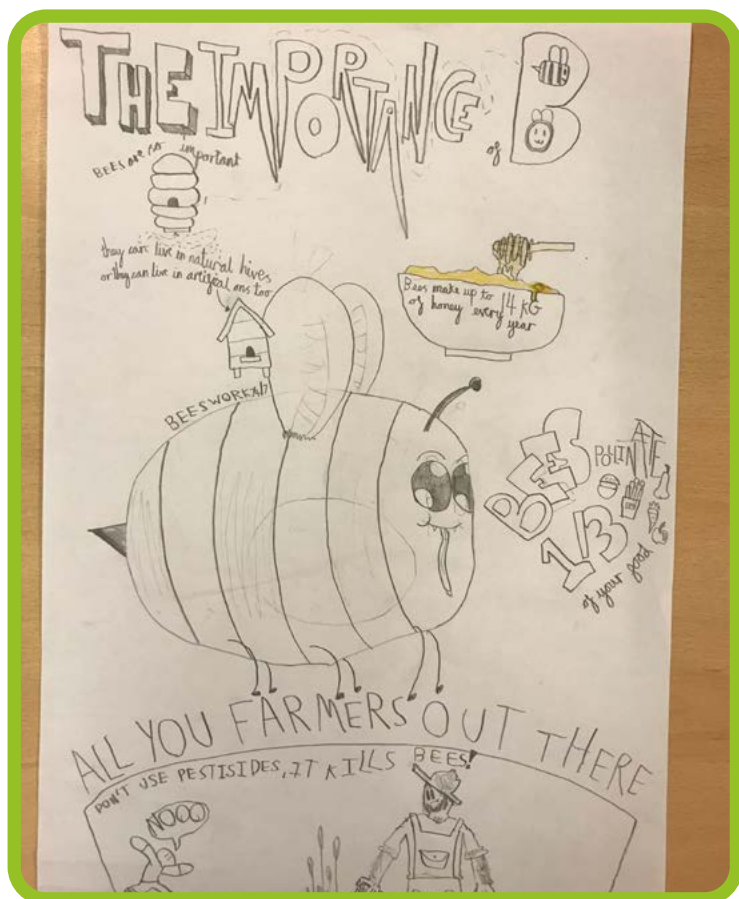 THE IMPORTANCE of B
BEES are so important
they can live in natural hives
or they can live in artifical ons too
Bees make up to 14 KG
of honey every year
BEES WORK
BEES POLINATE
1/3
of your food
ALL YOU FARMERS OUT THERE
DON'T USE PESTISIDES, IT KILLS BEES!
NOOO